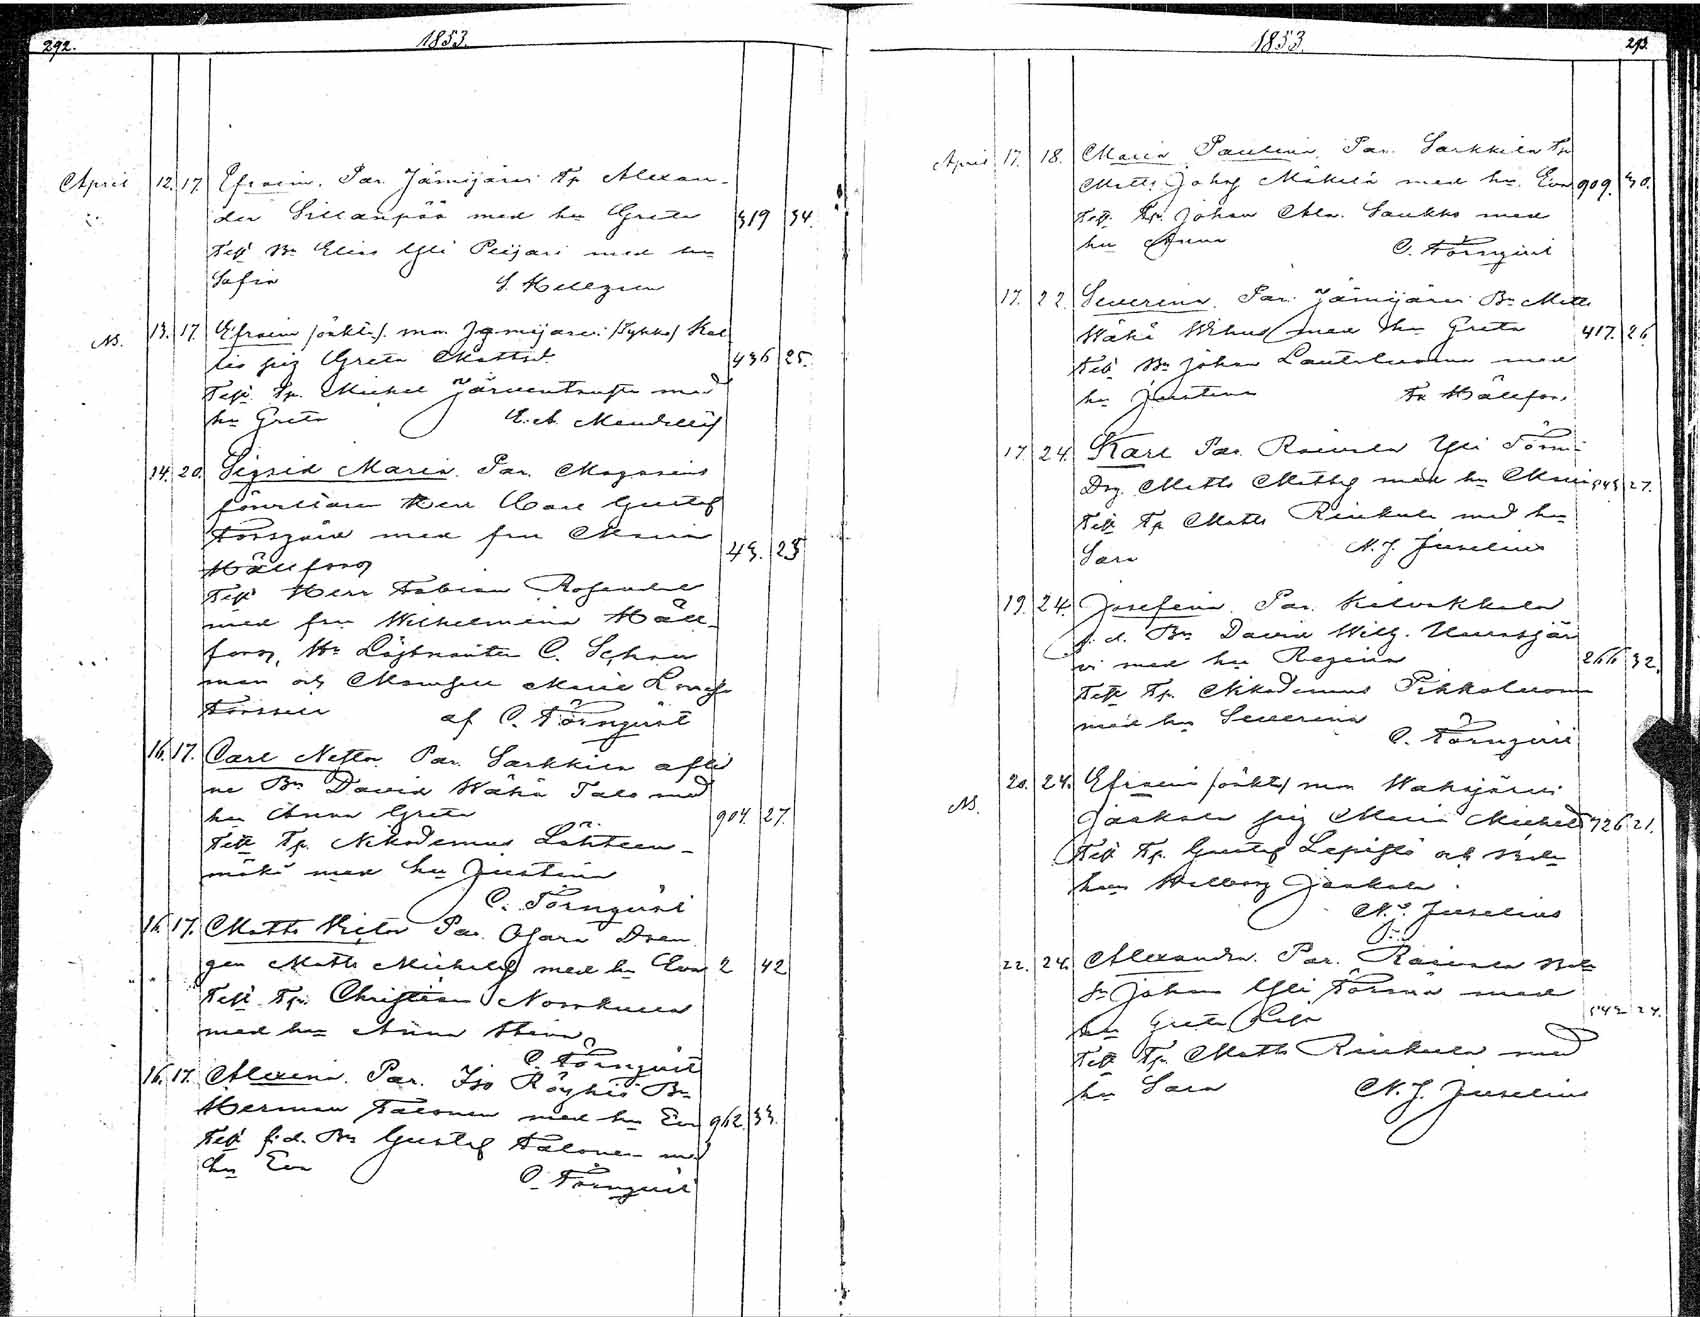 292. 1853.
April 12. 17. Efraim. Par. Jämijärvi Tp Alexan-
der Sillanpää med hu Greta 319 34.
Test Bn Elias Yli Peijari med hu
Sofia S. Hellgren
NB. 13. 17. Efraim /oäkta/. mor Jämijärvi /Tykkö/ Kal
lis pig Greta Mattsd. 436 25.
Test. Tp. Michel med
hu Greta E. A. Mandellöf
14. 20. Sigrid Maria. Par. Magasins
föreståndaren Herr Carl Gustaf
Forsgård med fru Maria 43. 25
Hällfors
Test Herr Fabian Rosendal
med fru Wilhelmina Häll-
fors, Hr Löjtnanten C. Schau
man och Mamsell Maria Lovisa
af C. Törnqvist
16. 17. Carl Nestor. Par. Sarkkila
ne Bn David Wähä Talo med
hu Anna Greta 904. 27.
Test Tp. Nikodemus Lähteen-
mäki med hu Justina
C. Törnqvist
16. 17. Matts Victor Par. Ojara Dren
gen Matts Michelsf med hu Eva 2 42
Test. Tp. Christian Norrkulla
med hu Anna Stina
C. Törnqvist
16. 17. Alexina. Par. Iso Röyhiö Bn
Herman Talonen med hu Eva 962. 33.
Test f.d. Bn Gustaf Talonen med
hu Eva C. Törnqvist
1853. 293.
April 17. 18. Maria Paulina. Par. Sarkkila Tp
Matts Johsf Mäkelä med hu. Eva 909. 30.
Test. Tp. Johan Alex. Saukko med
hu Anna C. Törnqvist
17. 22. Severina. Par. Jämijärvi Bn Matts
Wähä Wihu med hu Greta 417. 26.
Test Bn Johan Lauttaluoma med
hu Justina Fr Hällfors.
17. 24. Karl Par. Raivala Yli Törmä
Drg. Matts Mattsf med hu Maria 543 27.
Test Tp Matts Rinkula med hu
Sara N. J. Juselius
19. 24. Josefina. Par. Kilvakkala
f.d. Bn David Wilh. Uurasjär
vi med hu Regina 266 32.
Test Tp. Nikodemus Pikkaluoma
med hu Severina
C. Törnqvist
NB. 20. 24. Efraim /oäkta/ mor Wahojärvi
Jaakola pig Maria Michelsd 726 21.
Test Tp. Gustaf Lepistö och Bnd
hu Jaakola.
N. J. Juselius
22. 24. Alexandra. Par. Raivala Bnd
Sn Johan Yli Törmä med 542 24.
hu Greta Lisa
Test Tp. Matts Rinkula med
hu Sara N. J. Juselius